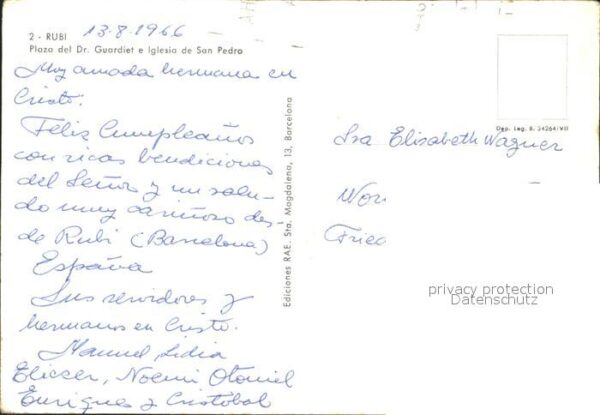 2 - RUBI 13-8-1966
Plaza del Dr. Guardiet e Iglesia de San Pedro
Muy amada hermana en
Cristo:
Feliz Cumpleaños
con ricas bendiciones
del Señor y un salu-
do muy cariñoso des-
de Rubi (Barcelona)
España
Sus servidores y
hermanos en Cristo.
Manuel, Lidia
Eliecer, Noemi Otoniel
Enrique y Cristobal
Ediciones RAE. Sta. Magdalena, 13. Barcelona
Dep. Leg. B. 34264/VII
Sra Elisabeth Wagner
Wor
Fried
privacy protection
Datenschutz